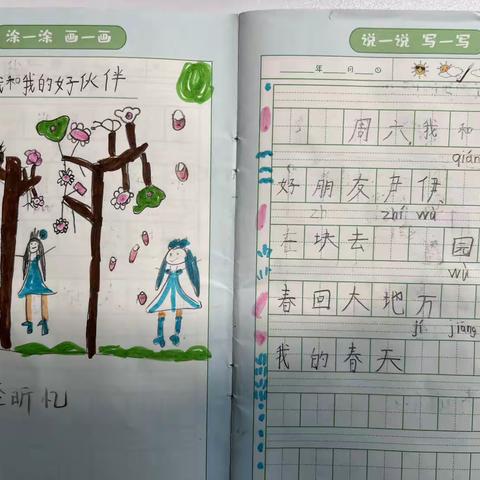 涂一涂 画一画
我和我的好伙伴
昕忆
说一说 写一写
年 月 日
周六我和
qiáng
好朋友尹伊
zh zhí wù
去 园
wù
春回大地万
jí jiāng
我的春天